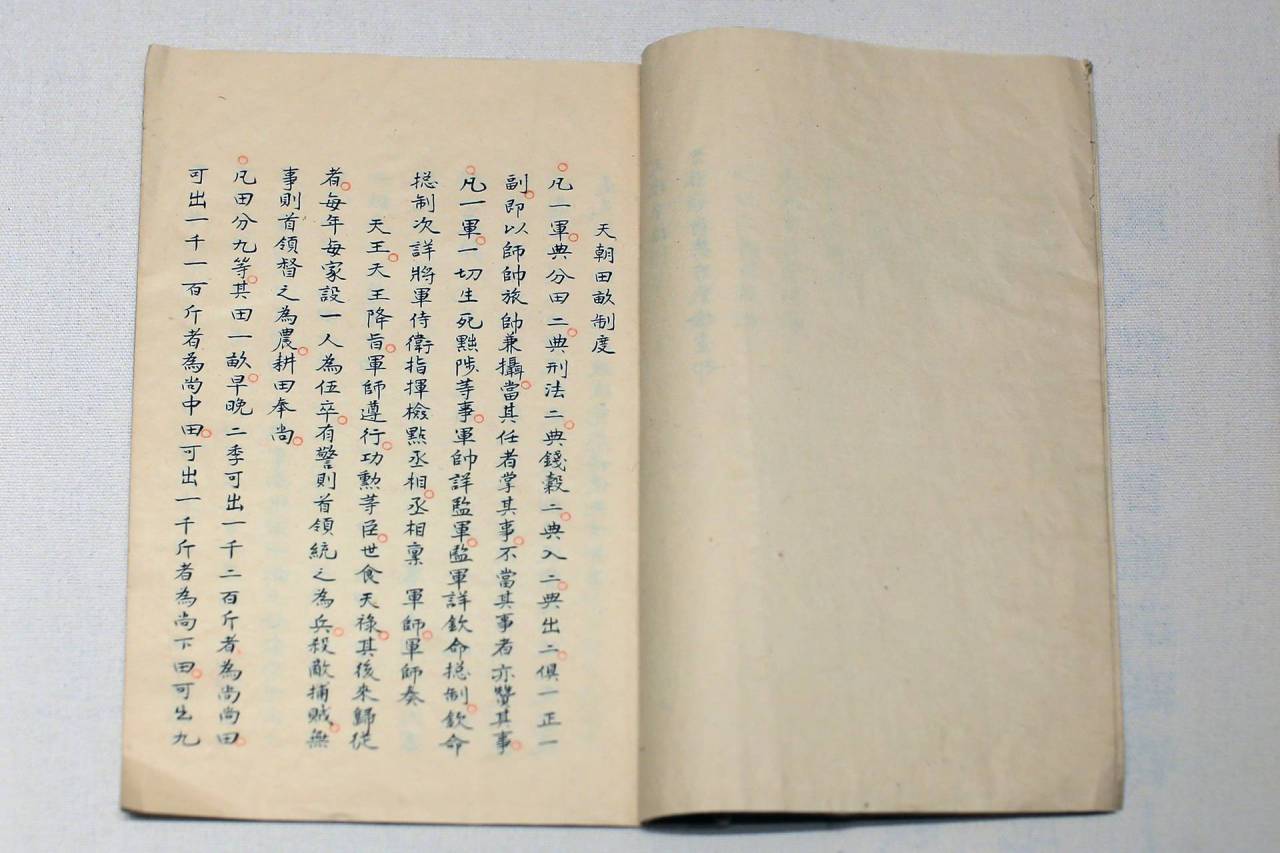 天朝田畝制度
凡一軍典分田二典刑法二典錢穀二典入二典出二俱一正一
副即以師帥旅帥兼攝當其任者掌其事不當其事者亦贊其事
凡一軍一切生死黜陟等事軍帥詳監軍監軍詳欽命總制欽命
總制次詳將軍侍衛指揮檢點丞相丞相稟軍師軍師奏
天王天王降旨軍師遵行功勳等臣世食天祿其後來歸從
者每年每家設一人為伍卒有警則首領統之為兵殺敵捕賊無
事則首領督之為農耕田奉尚
凡田分九等其田一畝早晚二季可出一千二百斤者為尚尚田
可出一千一百斤者為尚中田可出一千斤者為尚下田可出九